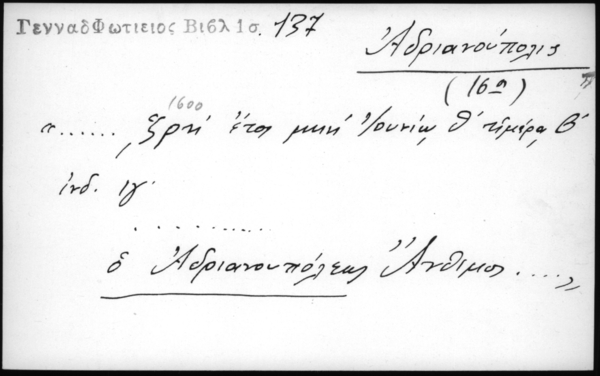 ΓενναδΦωτιειος Βιβλ 1σ. 137
Ἀδριανούπολις
(16η)
1600
"...... ͵ζρη' ἔτει μηνὶ Ἰουνίῳ θ' ἡμέρᾳ β'
ἰνδ. ιγ'
..........
ὁ Ἀδριανουπόλεως Ἄνθιμος ...."